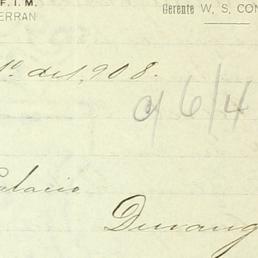 F. I. M.
ERRAN
Gerente W. S. CON
1º. del, 908.
a 6/4
alacio
Durang